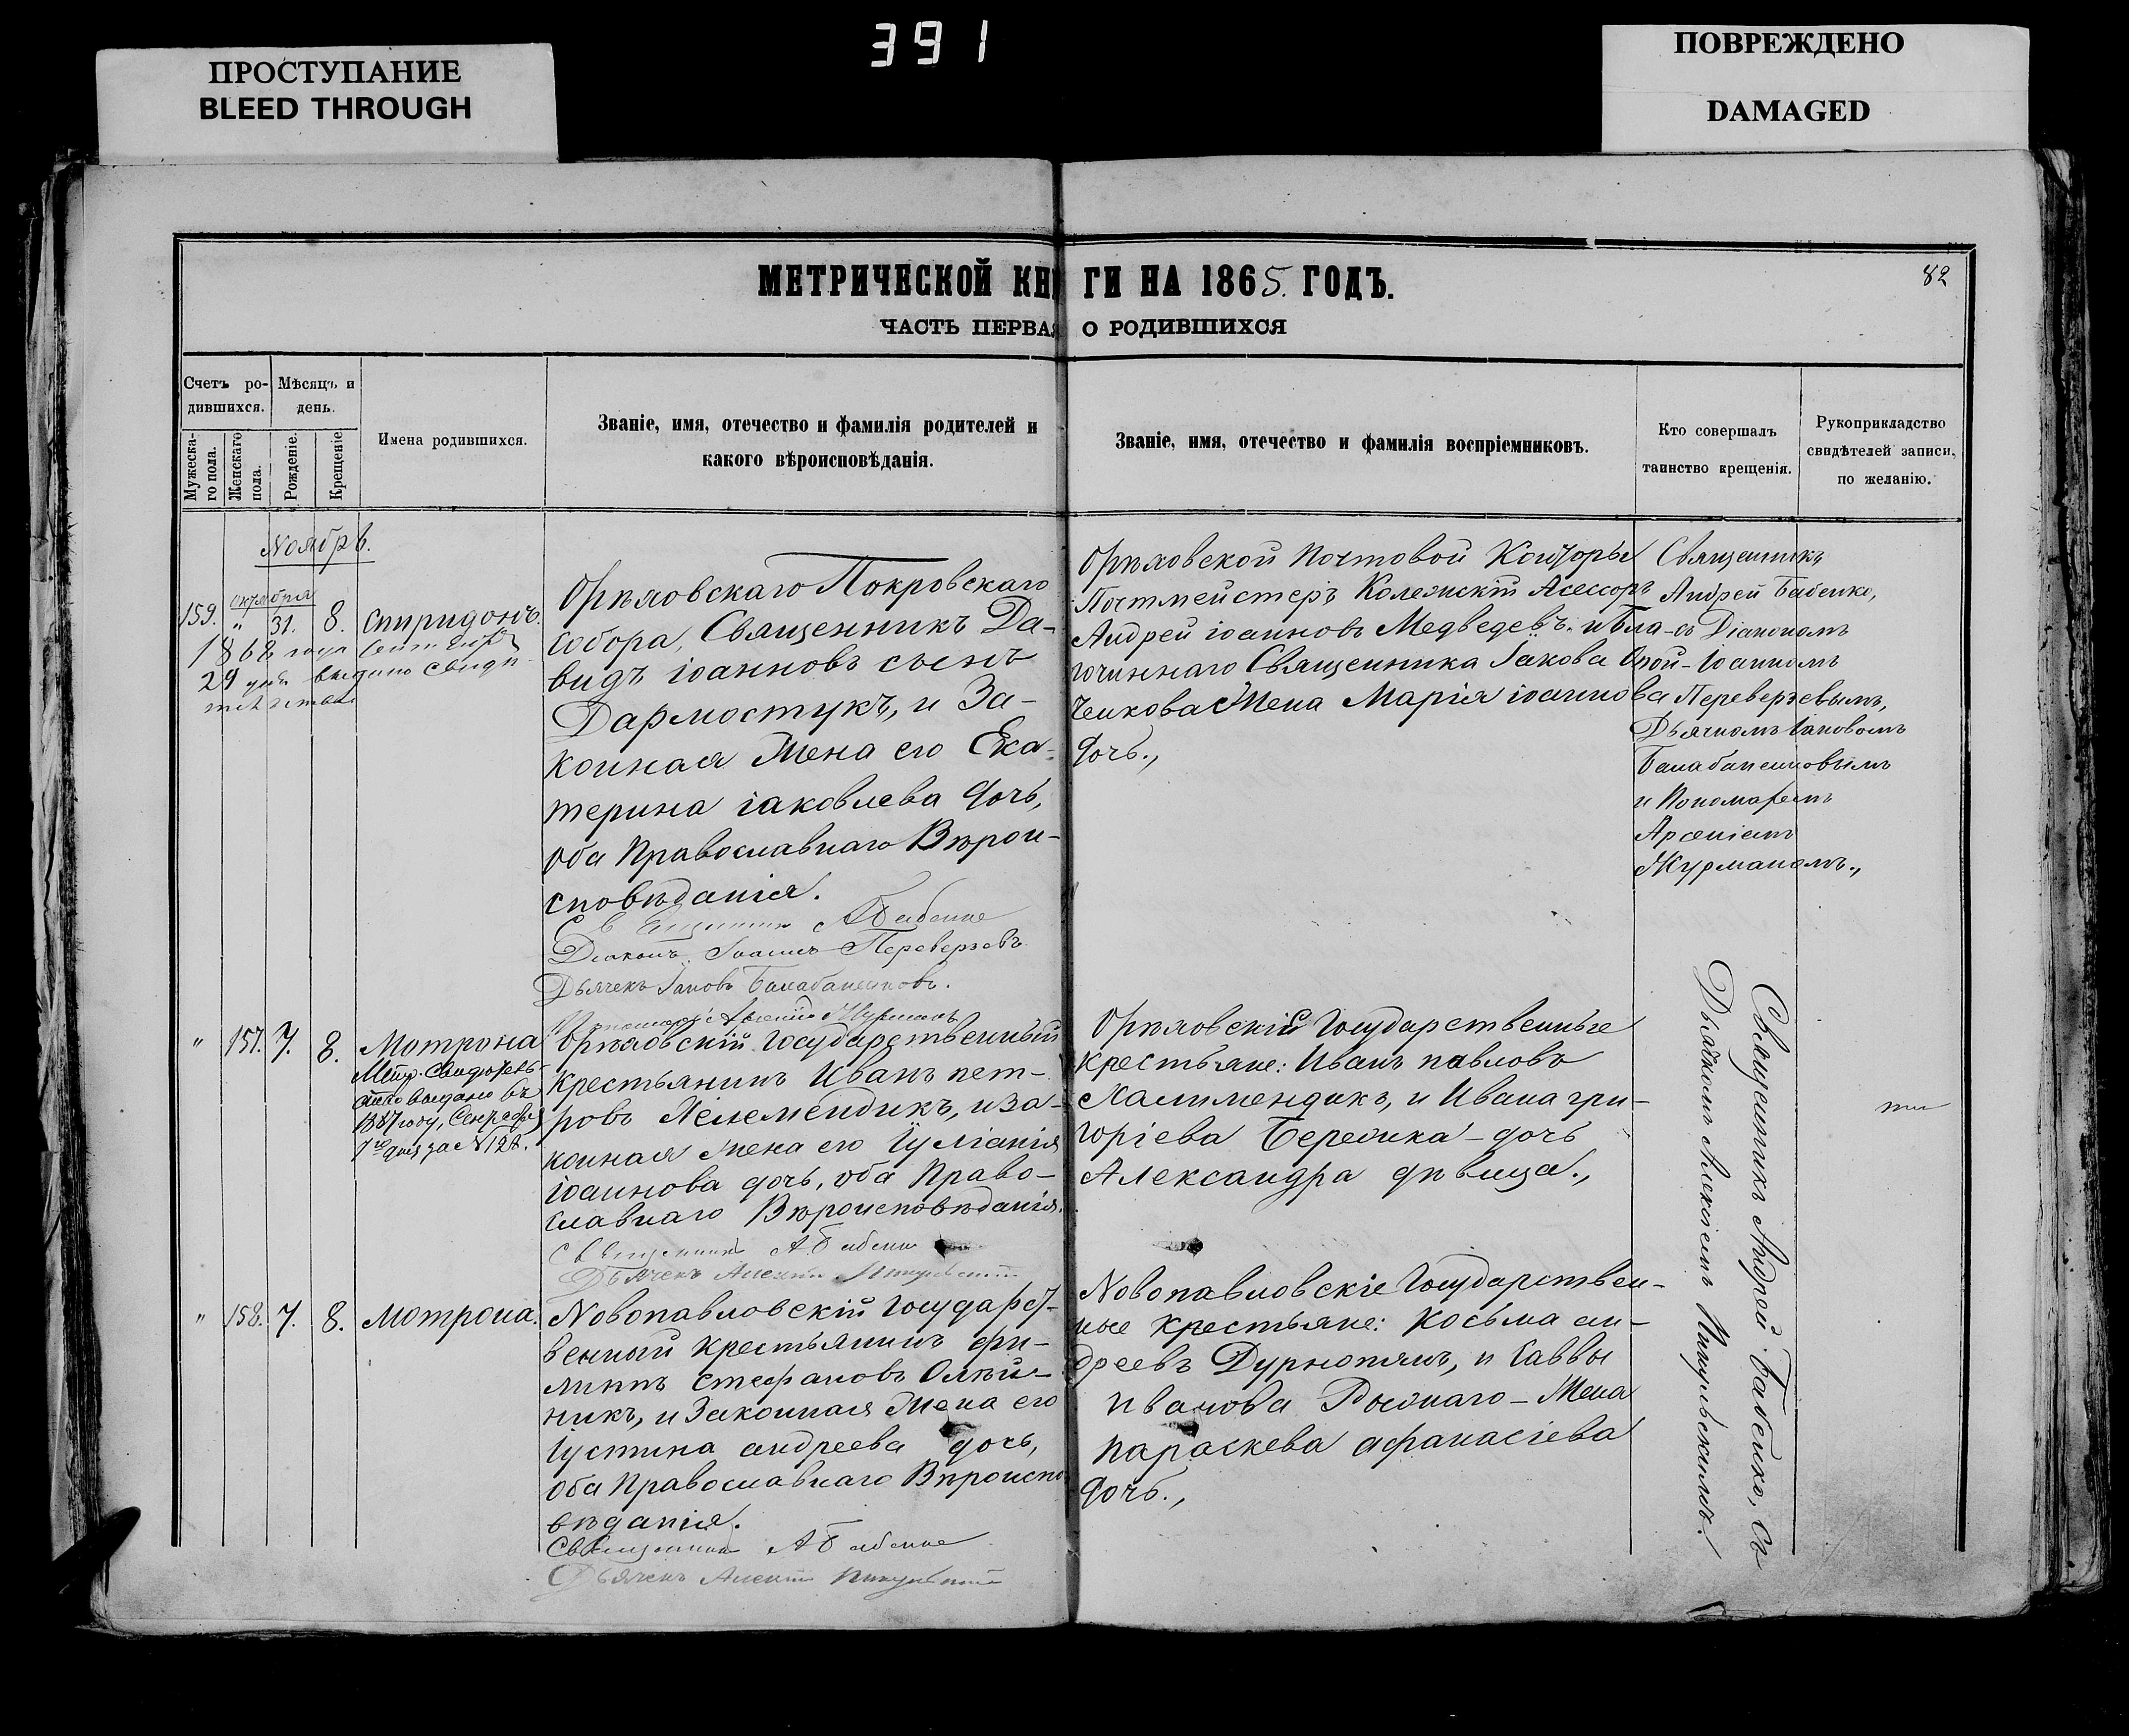 391
ПРОСТУПАНИЕ
BLEED THROUGH
ПОВРЕЖДЕНО
DAMAGED
МЕТРИЧЕСКОЙ КНИГИ НА 1865. ГОДЪ.
82
ЧАСТЬ ПЕРВАЯ О РОДИВШИХСЯ
Счетъ ро-
дившихся.
Мужеска-
го пола.
Женскаго
пола.
Мѣсяцъ и
день.
Рожденіе.
Крещеніе
Имена родившихся.
Званіе, имя, отечество и фамилія родителей и
какого вѣроисповѣданія.
Званіе, имя, отечество и фамилія воспріемниковъ.
Кто совершалъ
таинство крещенія.
Рукоприкладство
свидѣтелей записи,
по желанію.
Ноябрь.
октября
159. " 31. 8. Спиридонъ.
1868 года
29 дня выдано свидѣ-
тельство
Орѣховскаго Покровскаго
Собора, Священникъ Да-
видъ іоанновъ сынъ
Дармостукъ, и За-
конная Жена его Ека-
терина іаковлева дочь,
оба Православнаго Вѣрои-
сповѣданія.
Священникъ А Бабенко
Діаконъ Іоаннъ Переверзевъ
Дьячекъ Іаковъ Балабаненковъ.
Пономарь Арсеній Журманъ
Орѣховской Почтовой Конторы
Почтмейстеръ Колежскій Асессоръ
Андрей іоанновъ Медведевъ. и бла-
гочиннаго Священника Іакова
ченкова Жена Марія іоаннова
дочь.,
Священникъ
Андрей Бабенко,
съ Діакономъ
Іоанномъ
Переверзевымъ,
Дьячкомъ Іаковомъ
Балабаненковымъ
и Пономаремъ
Арсеніемъ
Журманомъ.,
" 157. 7. 8. Мотрона
Метр. свидѣтель-
ство выдано въ
1887 году,
1го дня за №128.
Орѣховскій Государственный
крестьянинъ Иванъ пет-
ровъ и за-
конная жена его Іуліанія
іоаннова дочь, оба Право-
славнаго Вѣроисповѣданія.
Священникъ А. Бабенко
Дьячекъ Алексій
Орѣховскій Государственные
крестьяне: Иванъ павловъ
и Ивана гри-
горіева дочь
Александра дѣвица.,
" 158. 7. 8. Мотрона.
Новопавловскій Государст-
венный крестьянинъ фи-
липпъ стефановъ Олѣй-
никъ, и Законная Жена его
Іустина андреева дочь,
оба Православнаго Вѣроиспо-
вѣданія.
Священникъ А Бабенко
Дьячекъ Алексій
Новопавловскіе Государствен-
ные крестьяне: Косьма ан-
дреевъ Дурнопянъ, и Саввы
иванова Рыжаго - Жена
параскева афанасіева
дочь.,
Священникъ Андрей Бабенко, съ
Дьячкомъ Алексіемъ